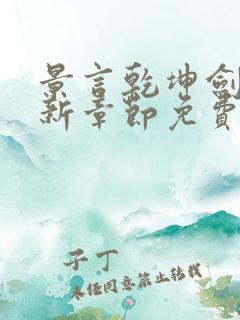 景言乾坤剑
新章节免费
子丁
未经同意禁止转载